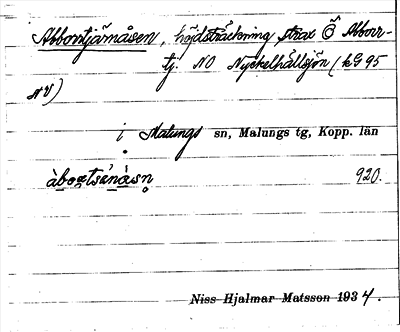 Abborrtjärnåsen, höjdsträckning, strax Ö Abborr-
tj. NO Nyckelhållsjön (kG95
NV)
i Malungs sn, Malungs tg, Kopp. län
920.
Niss Hjalmar Matsson 1934.